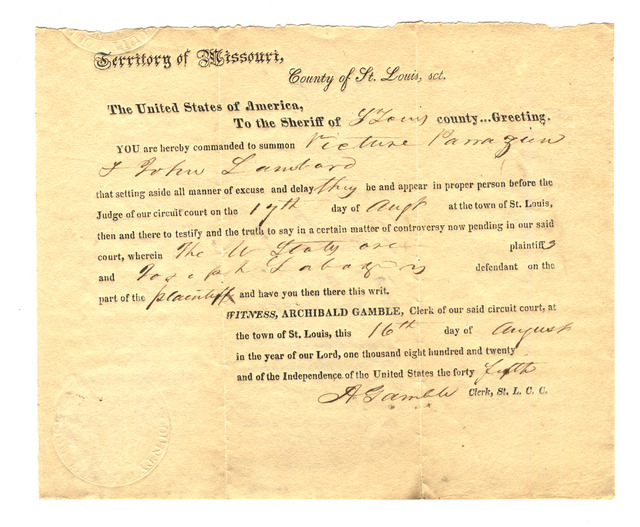 Territory of Missouri,
County of St. Louis, sct.
The United States of America,
To the Sheriff of St Louis county...Greeting.
YOU are hereby commanded to summon Victure
& John Lambard
that setting aside all manner of excuse and delay they be and appear in proper person before the
Judge of our circuit court on the 17th day of Augt at the town of St. Louis,
then and there to testify and the truth to say in a certain matter of controversy now pending in our said
court, wherein The U States are plaintiffs
and Joseph defendant on the
part of the plaintiff and have you then there this writ.
WITNESS, ARCHIBALD GAMBLE, Clerk of our said circuit court, at
the town of St. Louis, this 16th day of August
in the year of our Lord, one thousand eight hundred and twenty
and of the Independence of the United States the forty fifth
A Gamble Clerk, St. L. C. C.